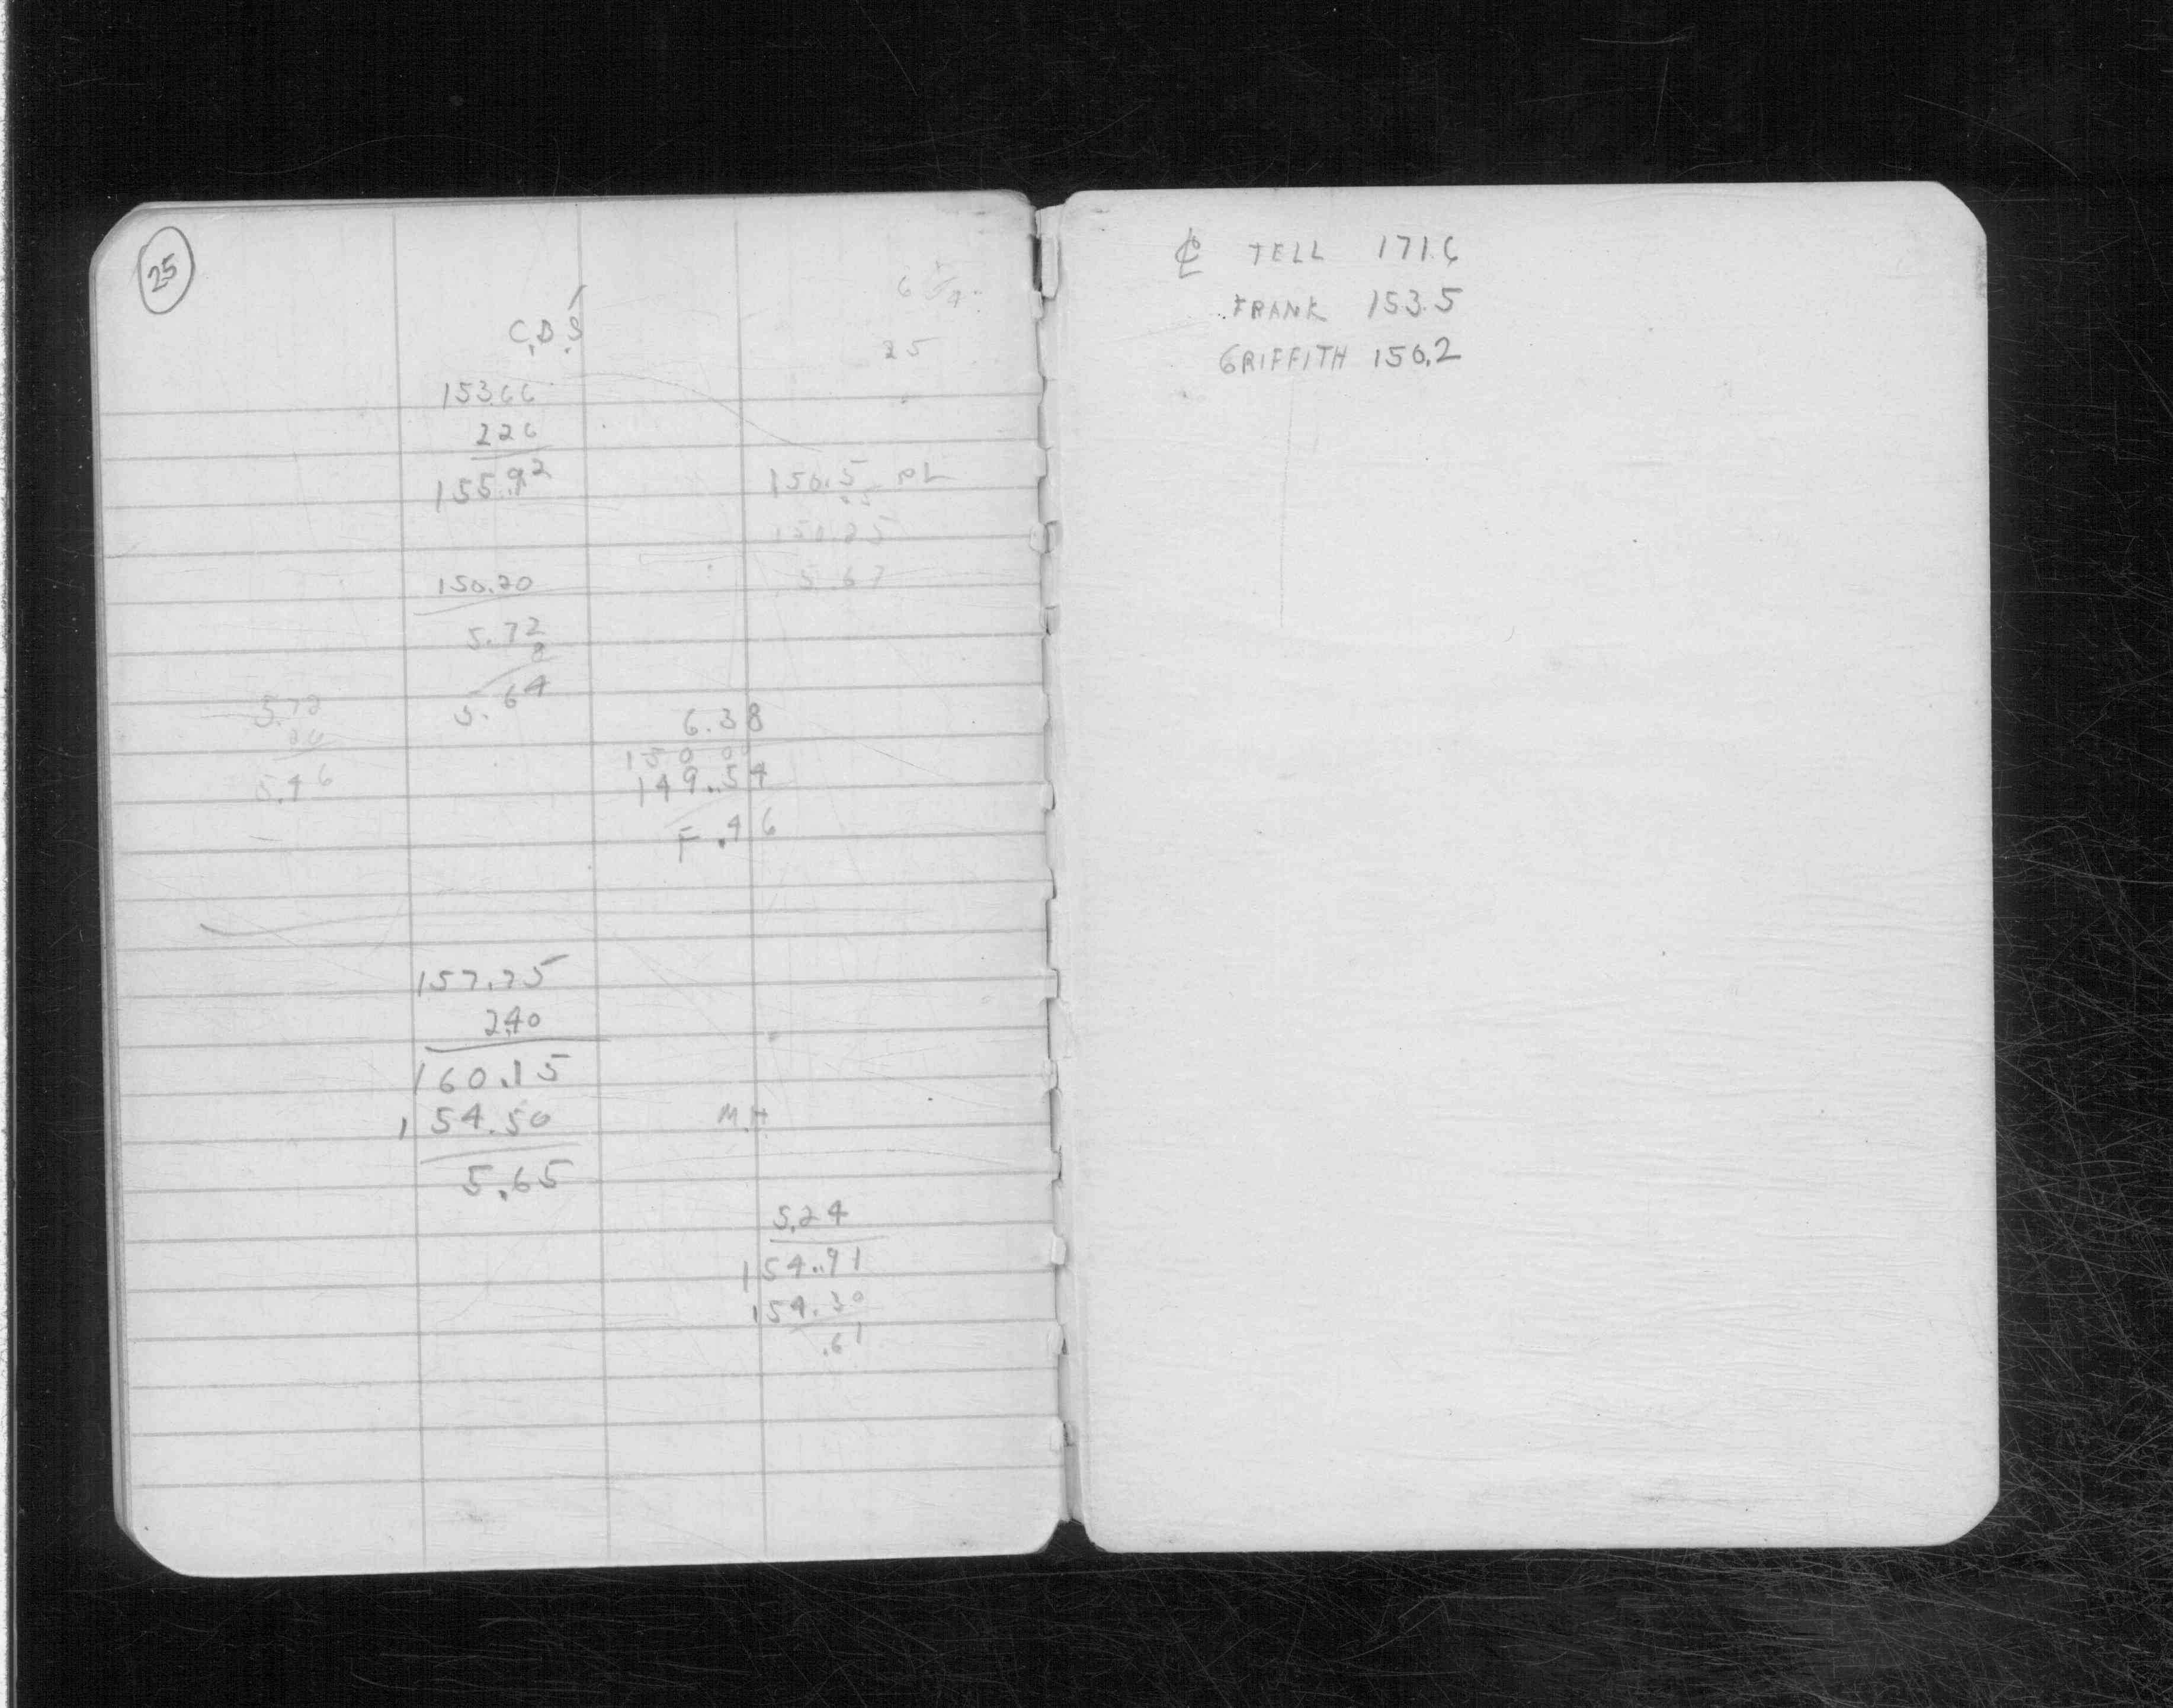 25
C.B.S
25
153.66
2 26
155.92
150.5 PL
.25
150.25
150.20
5.67
5.72
8
5.64
5.72
26
5.46
6.38
150 00
149.54
F .46
157.75
2.40
160.15
154.50
M.H.
5.65
5.24
154.91
154.30
.61
℄ TELL 171.6
FRANK 153.5
GRIFFITH 150.2